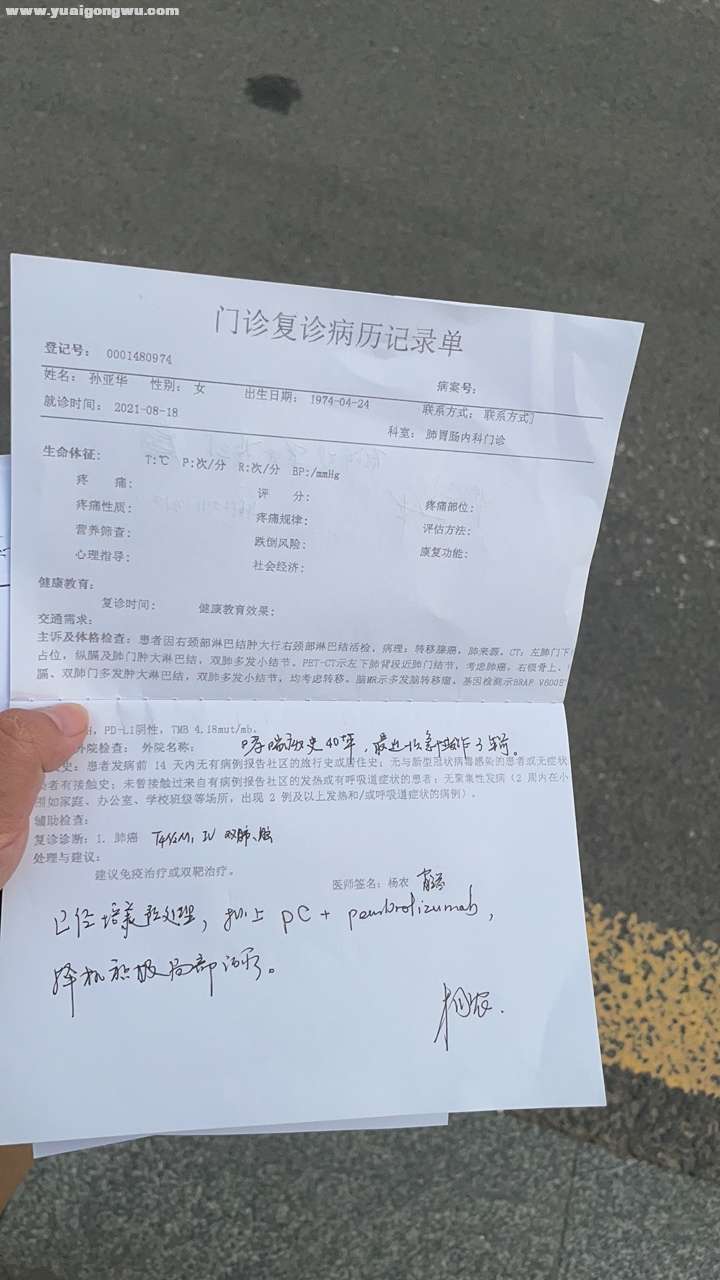 www.yuaigongwu.com
门诊复诊病历记录单
登记号： 0001480974
病案号：
姓名： 孙亚华 性别： 女 出生日期： 1974-04-24 联系方式： 联系方式]
就诊时间： 2021-08-18 科室： 肺胃肠内科门诊
生命体征： T:℃ P:次/分 R:次/分 BP:/mmHg
疼 痛： 评 分： 疼痛部位：
疼痛性质： 疼痛规律： 评估方法：
营养筛查： 跌倒风险： 康复功能：
心理指导： 社会经济：
健康教育：
复诊时间： 健康教育效果：
交通需求：
主诉及体格检查：患者因右颈部淋巴结肿大行右颈部淋巴结活检，病理：转移腺癌，肺来源。CT：左肺门下
占位，纵膈及肺门肿大淋巴结，双肺多发小结节。PET-CT示左下肺背段近肺门结节，考虑肺癌。右锁骨上、
膈、双肺门多发肿大淋巴结，双肺多发小结节，均考虑转移。脑MR示多发脑转移瘤。基因检测示BRAF V600E
PD-L1阴性，TMB 4.18mut/mb。
外院检查： 外院名称： 哮喘病史40年，最近一次急性发作3年前。
史：患者发病前 14 天内无有病例报告社区的旅行史或居住史；无与新型冠状病毒感染的患者或无症状
染者有接触史；未曾接触过来自有病例报告社区的发热或有呼吸道症状的患者；无聚集性发病（2 周内在小
围如家庭、办公室、学校班级等场所，出现 2 例及以上发热和/或呼吸道症状的病例）。
辅助检查：
复诊诊断：1. 肺癌 IV 双肺、脑
处理与建议：
建议免疫治疗或双靶治疗。
医师签名：杨农
已经培美预处理，拟上 PC + pembrolizumab，
择机积极局部治疗。
杨农.